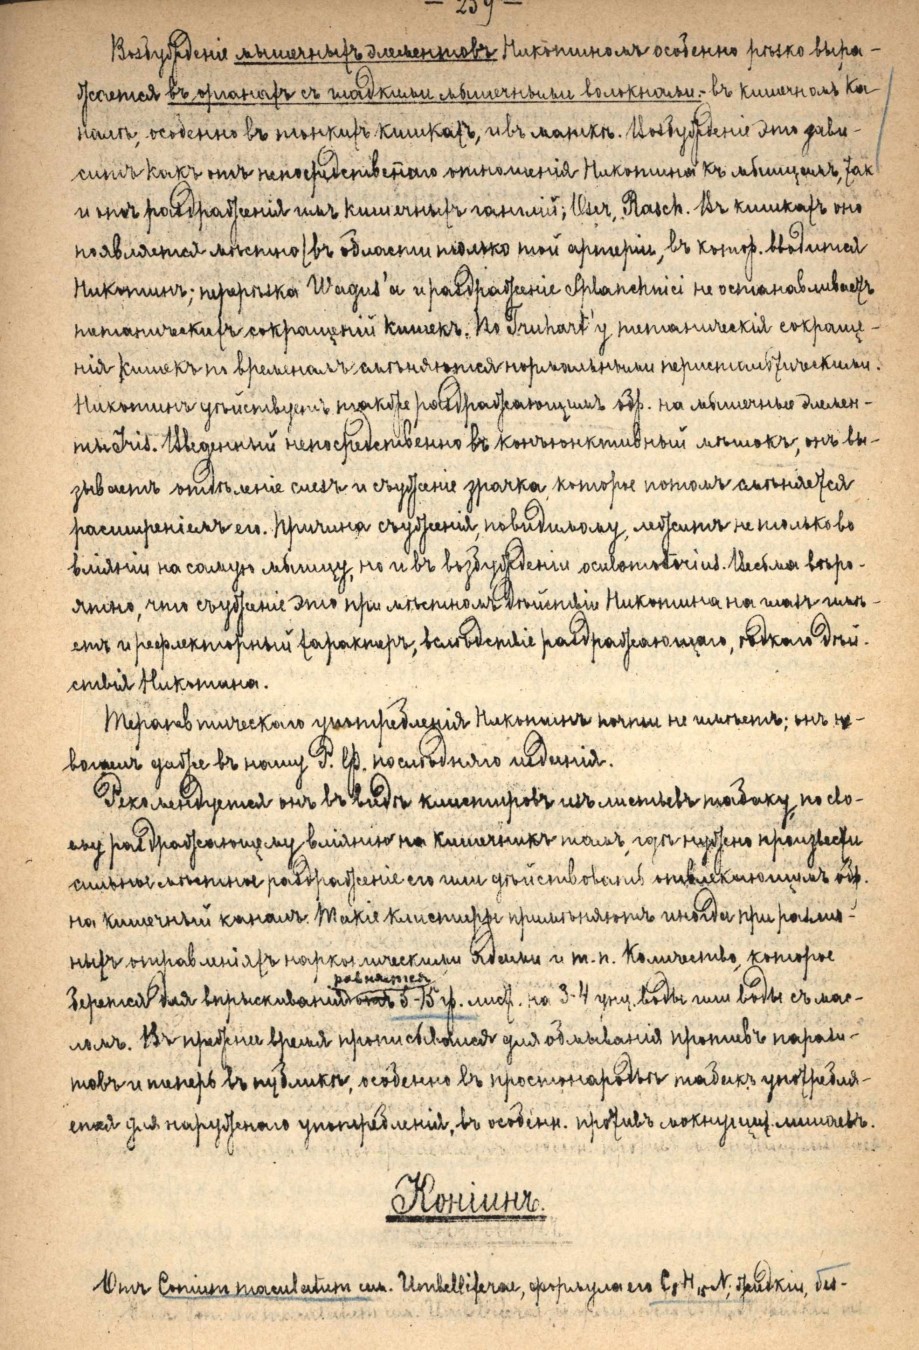 — 239 —
Возбужденіе мышечныхъ элементовъ Никотиномъ особенно рѣзко выра-
жается въ органахъ съ гладкими мышечными волокнами:- въ кишечномъ ка-
налѣ, особенно въ тонкихъ кишкахъ, и въ маткѣ. Возбужденіе это зави-
ситъ какъ отъ непосредственнаго отношенія Никотина къ мышцамъ, так
и отъ раздраженія имъ кишечныхъ ганглій; Basch. Въ кишкахъ оно
появляется мѣстно (въ области только той артеріи, въ котор. вводится
Никотинъ; перерѣзка Wagus'a и раздраженіе Splanchnici не останавливаетъ
тетаническихъ сокращеній кишекъ. По Truhart'у тетаническія сокраще-
нія кишекъ по временамъ смѣняются нормальными перистальтическими.
Никотинъ дѣйствуетъ также раздражающимъ обр. на мышечные элемен-
ты Iris. Введенный непосредственно въ конъюнктивный мѣшокъ, онъ вы-
зываетъ отдѣленіе слезъ и съуженіе зрачка, которое потомъ смѣняется
расширеніемъ его. Причина съуженія, повидимому, лежитъ не только во
вліяніи на самую мышцу, но и въ возбужденіи oculomotorius. Весьма вѣро-
ятно, что съуженіе это при мѣстномъ дѣйствіи Никотина на глазъ имѣ-
етъ и рефлекторный характеръ, вслѣдствіе раздражающаго, ѣдкаго дѣй-
ствія Никотина.
Терапевтическаго употребленія Никотинъ почти не имѣетъ; онъ не
вошелъ даже въ нашу Р. Ф. послѣдняго изданія.
Рекомендуется онъ въ видѣ клистировъ изъ листьевъ табаку, по сво-
ему раздражающему вліянію на кишечникъ тамъ, гдѣ нужно произвести
сильное мѣстное раздраженіе его или дѣйствовать отвлекающимъ обр.
на кишечный каналъ. Такіе клистиры примѣняютъ иногда при различ-
ныхъ отравленіяхъ наркотическими ядами и т. п. Количество, которое
равняется
берется для впрыскиваній отъ 5-15 гр. лист. на 3-4 унц. воды или воды съ мас-
ломъ. Въ прежнее время прописывался для обмыванія противъ парази-
товъ и теперь въ публикѣ, особенно въ простонародьѣ табакъ употребля-
ется для наружнаго употребленія, въ особенн. противъ мокнущих лишаевъ.
Коніинъ.
Отъ Conium maculatum см. Umbelliferae, формула его C8H15N; жидкій, без-